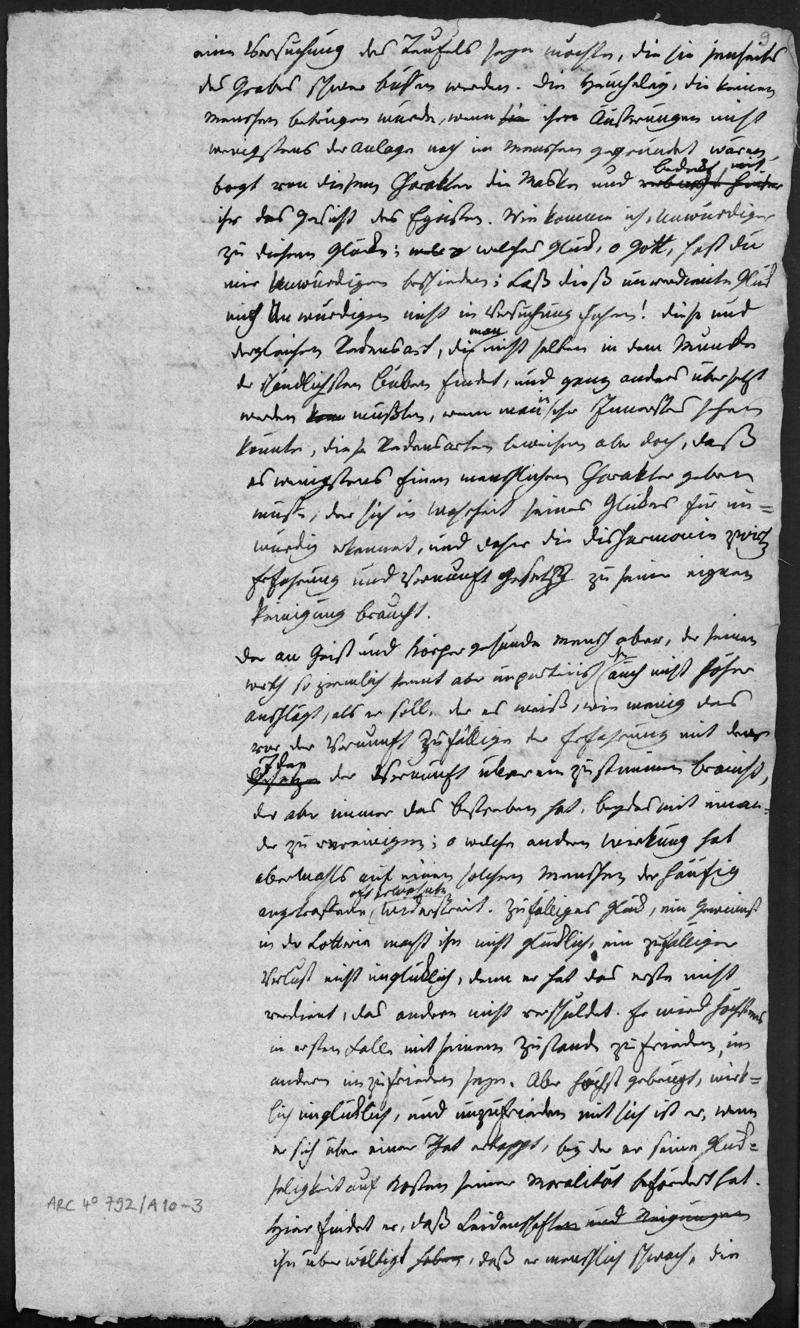 9
einer Versuchung des Teufels seyn möchte, die sie jenseits
des Grabes schwer büßen werden. Die Heucheley, die keinen
Menschen betrügen würde, wenn sie ihre Äusserungen nicht
wenigstens der Anlage nach im Menschen gegründet wären,
bedeckt mit
borgt von diesem Charakter die Maske und verbirgt hinter
ihr das Gesicht des Egoisten. Wie komme ich, Unwürdiger
zu diesem Glücke; welches Glück, o Gott, hast du
mir Unwürdigen beschieden; Laß dieß unverdiente Glück
mich Unwürdigen nicht in Versuchung führen! diese und
man
dergleichen Redensart, die nicht selten in dem Munde
der schändlichsten Buben findet, und ganz anders übersetzt
werden müßten, wenn man in ihr Innerstes sehen
könnte, diese Redensarten beweisen aber doch, daß
es wenigstens Einen menschlichen Charakter geben
muß, der sich in Wahrheit seines Glückes für un=
würdig erkennet, und daher die Disharmonie zwisch
Erfahrung und Vernunft Gesetze zu seiner eignen
Peinigung braucht.
Der an Geist und Körper gesunde Mensch aber, der seinen
werth so ziemlich kennt aber unparteiisch auch nicht höher
anschlägt, als er soll, der es weiß, wie wenig das
vor der Vernunft Zufällige der Erfahrung mit den
Ideen
Gesetzen der Vernunft übereinzustimmen braucht,
der aber immer das Bestreben hat, beydes mit einan=
der zu vereinigen; o welche andere Wirkung hat
abermahls auf einen solchen Menschen der häufig
oft erwähnte
angetroffene Widerstreit. Zufälliges Glück, ein Gewinnst
in der Lotterie macht ihn nicht glücklich, ein zufälliger
Verlust nicht unglücklich, denn er hat das erste nicht
verdient, das andere nicht verschuldet. Er wird höchstens
in ersten Falle mit seinem Zustande zufrieden, im
andern unzufrieden seyn. Aber höchst gebeugt, wirk=
lich unglücklich, und unzufrieden mit sich ist er, wenn
er sich über einer That ertappt, bey der er seine Glück=
seligkeit auf Kosten seiner Moralität befördert hat.
Hier findet er, daß Leidenschaften und Neigungen
ihn überwältigt haben, daß er menschlich schwach, die
ARC 4° 792/A10-3